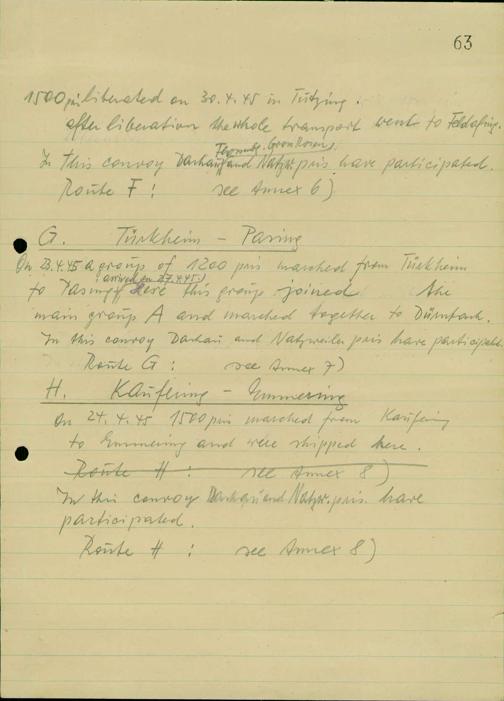 63
1500 pris liberated on 30.4.45 in Tutzing.
after liberation the whole transport went to Feldafing.
Flossenbg. GrossRosen
In this convoy Dachau and Natzw. pris have participated.
Route F : see Annex 6)
G. Türkheim - Pasing
On 23.4.45 a group of 1200 pris marched from Türkheim
(arrived on 27.4.45.)
to Pasing. Here this group joined the
main group A and marched together to Dürnbach.
In this convoy Dachau and Natzweiler pris have participated.
Route G : see Annex 7)
H. Kaufering - Emmering
On 24.4.45 1500 pris marched from Kaufering
to Emmering and were shipped here.
Route H : see Annex 8)
In this convoy Dachau and Natzw. pris. have
participated.
Route H : see Annex 8)